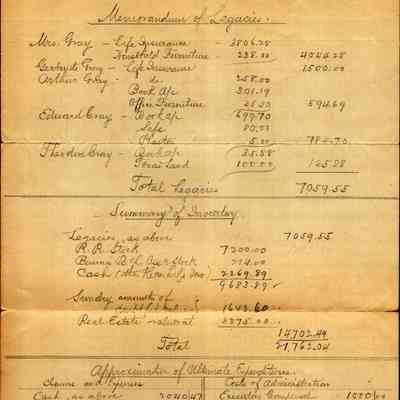 Memorandum of Legacies.
Mrs. Gray – Life Insurance – 3806.28
Household Furniture 238.00 4044.28
Gertrude Gray – Life Insurance 1500.00
Arthur Gray – do 258.00
Book a/c 301.19
Office Furniture 25.50 584.69
Edward Gray – Book a/c 699.70
Safe 80.00
5.00 784.70
Theodore Gray – Book a/c 25.58
Land 100.00 125.58
Total Legacies 7059.55
Summary of Inventory.
Legacies, as above 7059.55
R. R. Stock 7200.00
Stock 214.00
Cash 2269.89
9683.89
Sunday amounts of
1643.60
Real Estate 3375.00
14702.49
Total 21,762.04
Approximation of Ultimate Expenditures.
Claims and Expenses Costs of Administration
Cash, as above 2040.47 Executors